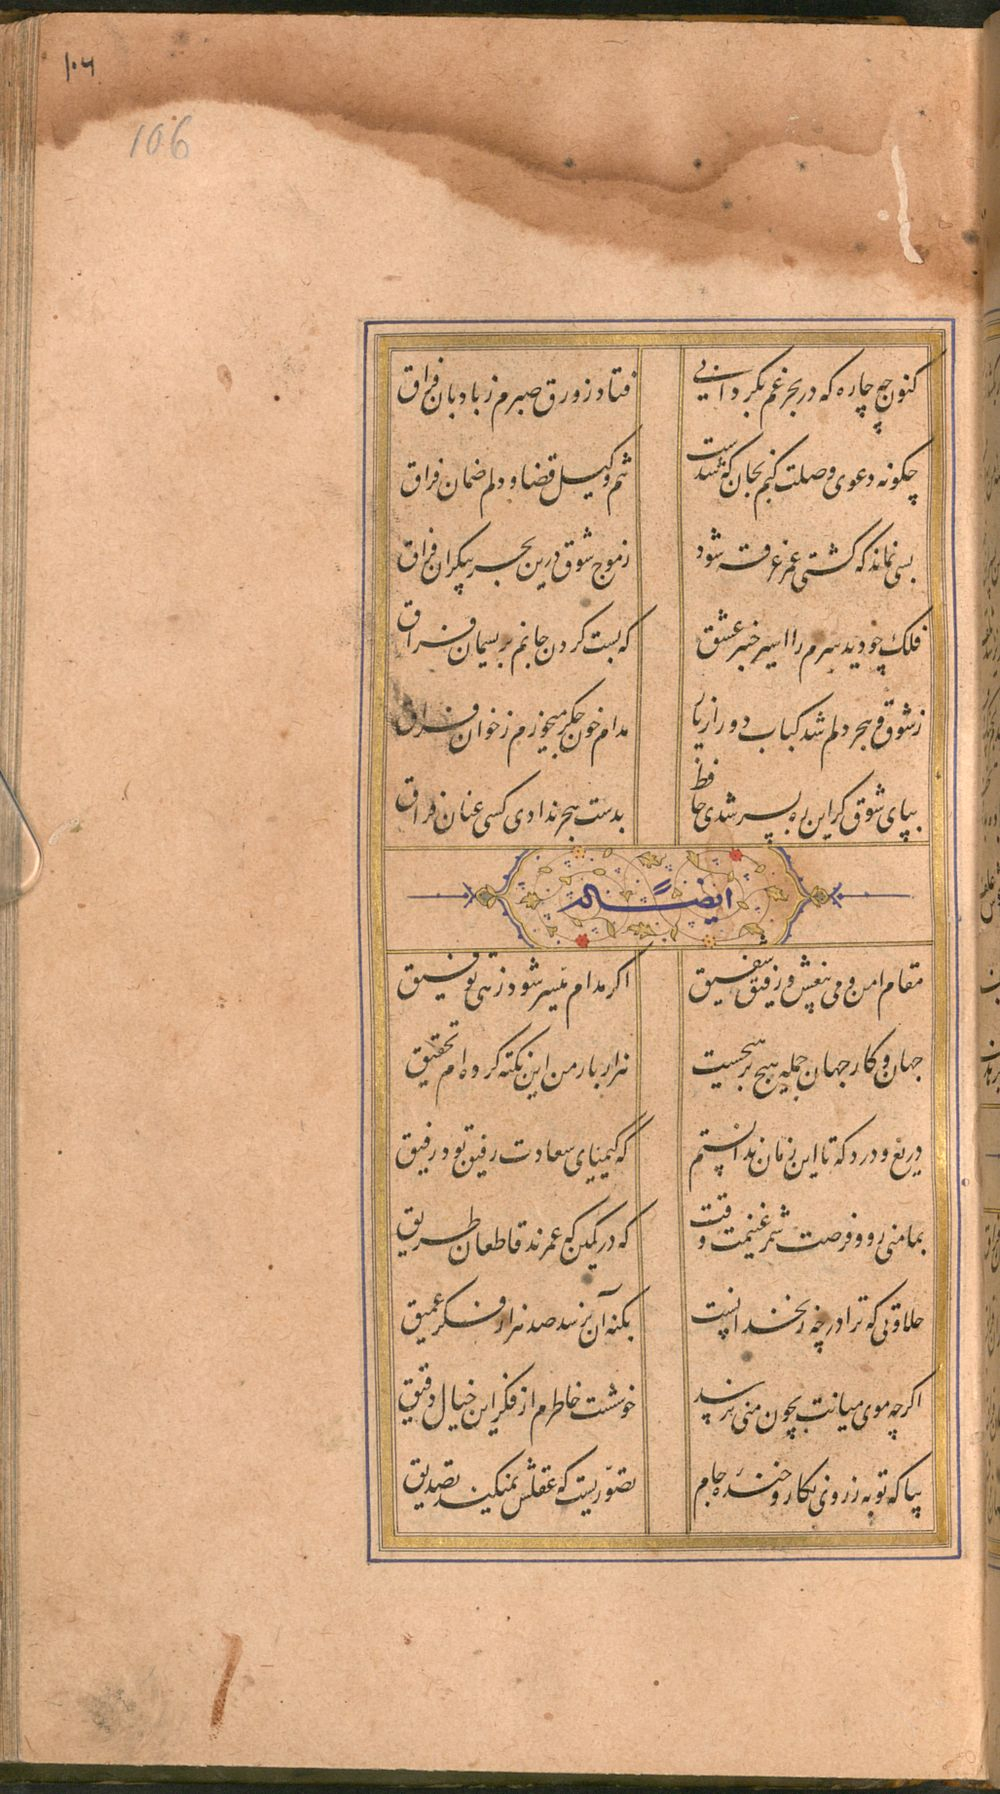 ۱۰۶
106
کنون چه چاره که در بحر غم بگردابی
فتاد زورق صبرم زبادبان فراق
چکونه دعوی وصلت کنم بجان که شدست
تنم وکیل قضا و دلم ضمان فراق
بسی نماند که کشتی عمر غرقه شود
زموج شوق درین بحر بیکران فراق
فلک چو دید سرم را اسیر خنبر عشق
که بست کردن جانم بریسمان فراق
زشوق و هجر دلم شد کباب دور از یار
مدام خون جکر میخورم زخوان فراق
بپای شوق کر این ره بسر شدی حافظ
بدست هجر ندادی کسی عنان فراق
ایضاً له
مقام امن و می بیغش و رفیق شفیق
اکر مدام میسر شود زهی توفیق
جهان و کار جهان جمله هیچ بر هیچست
هزار بار من این نکته کرده ام تحقیق
دریغ و درد که تا این زمان ندانستم
که کیمیای سعادت رفیق بود رفیق
بمامنی رو و فرصت شمر غنیمت وقت
که در کمین که عمرند قاطعان طریق
حلاوتی که ترا در چه زنخدانست
بکنه آن نرسد صد هزار فکر عمیق
اکرچه موی میانت بچون منی نرسد
خوشست خاطرم از فکر این خیال دقیق
بیا که توبه ز روی نکار و خنده جام
تصوریست که عقلش نمیکند تصدیق